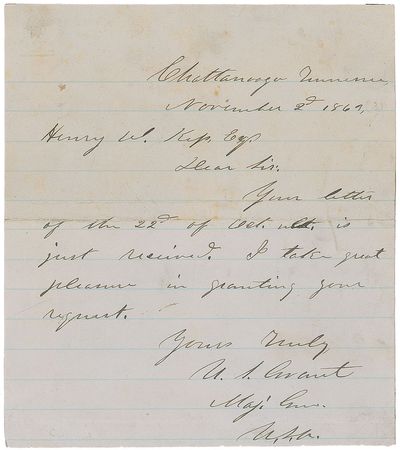 Chattanooga Tennessee,
November 2d 1863,
Henry W. Kip, Esq.
Dear Sir:
Your letter
of the 22d of Oct. ult. is
just received. I take great
pleasure in granting your
request.
Yours Truly
U. S. Grant
Maj. Gen.
U.S.A.